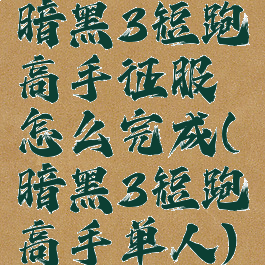 暗黑3短跑
高手征服
怎么完成(
暗黑3短跑
高手单人)